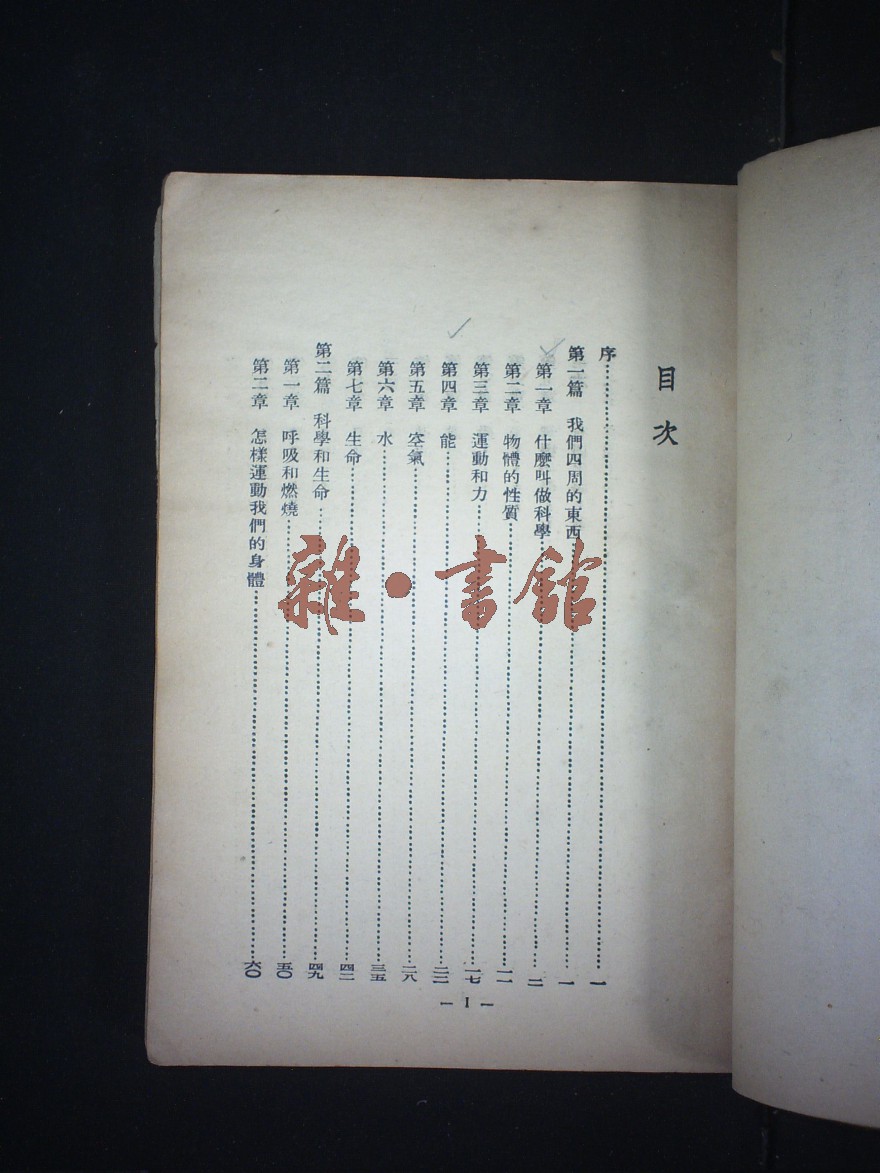 目次
序……一
第一篇 我們四周的東西……一
第一章 什麼叫做科學……二
第二章 物體的性質……一一
第三章 運動和力……一七
第四章 能……二二
第五章 空氣……二八
第六章 水……三五
第七章 生命……四二
第二篇 科學和生命……四九
第一章 呼吸和燃燒……五〇
第二章 怎樣運動我們的身體……六〇
— I —
雜·書館